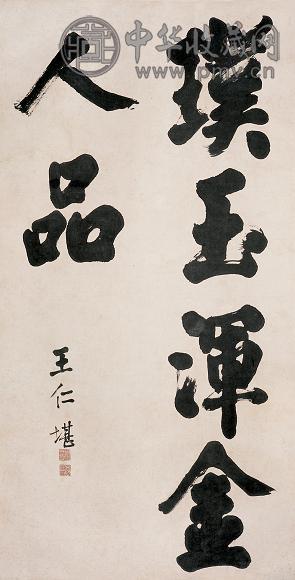 璞玉渾金
人品
王仁堪
中华收藏网
www.pmv.cn